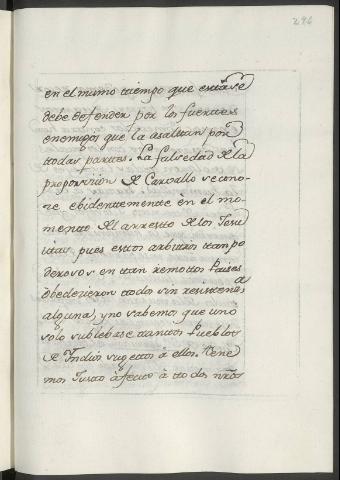 296
en el mismo tiempo que esta se
debe defender por los fuertes
enemigos que la asaltan por
todas partes. La falsedad de la
proposicion de Carvallo se cono-
ze ebidentemente en el mo-
mento del arresto de los Jesu
itas, pues estos arbitros tan po
derosos en tan remotos Paises
obedezieron todo sin resistencia
alguna, y no sabemos que uno
solo sublebase tantos Pueblos
de Indios sugettos à ellos. Tene
mos Justo àfecto à todos nr̃os